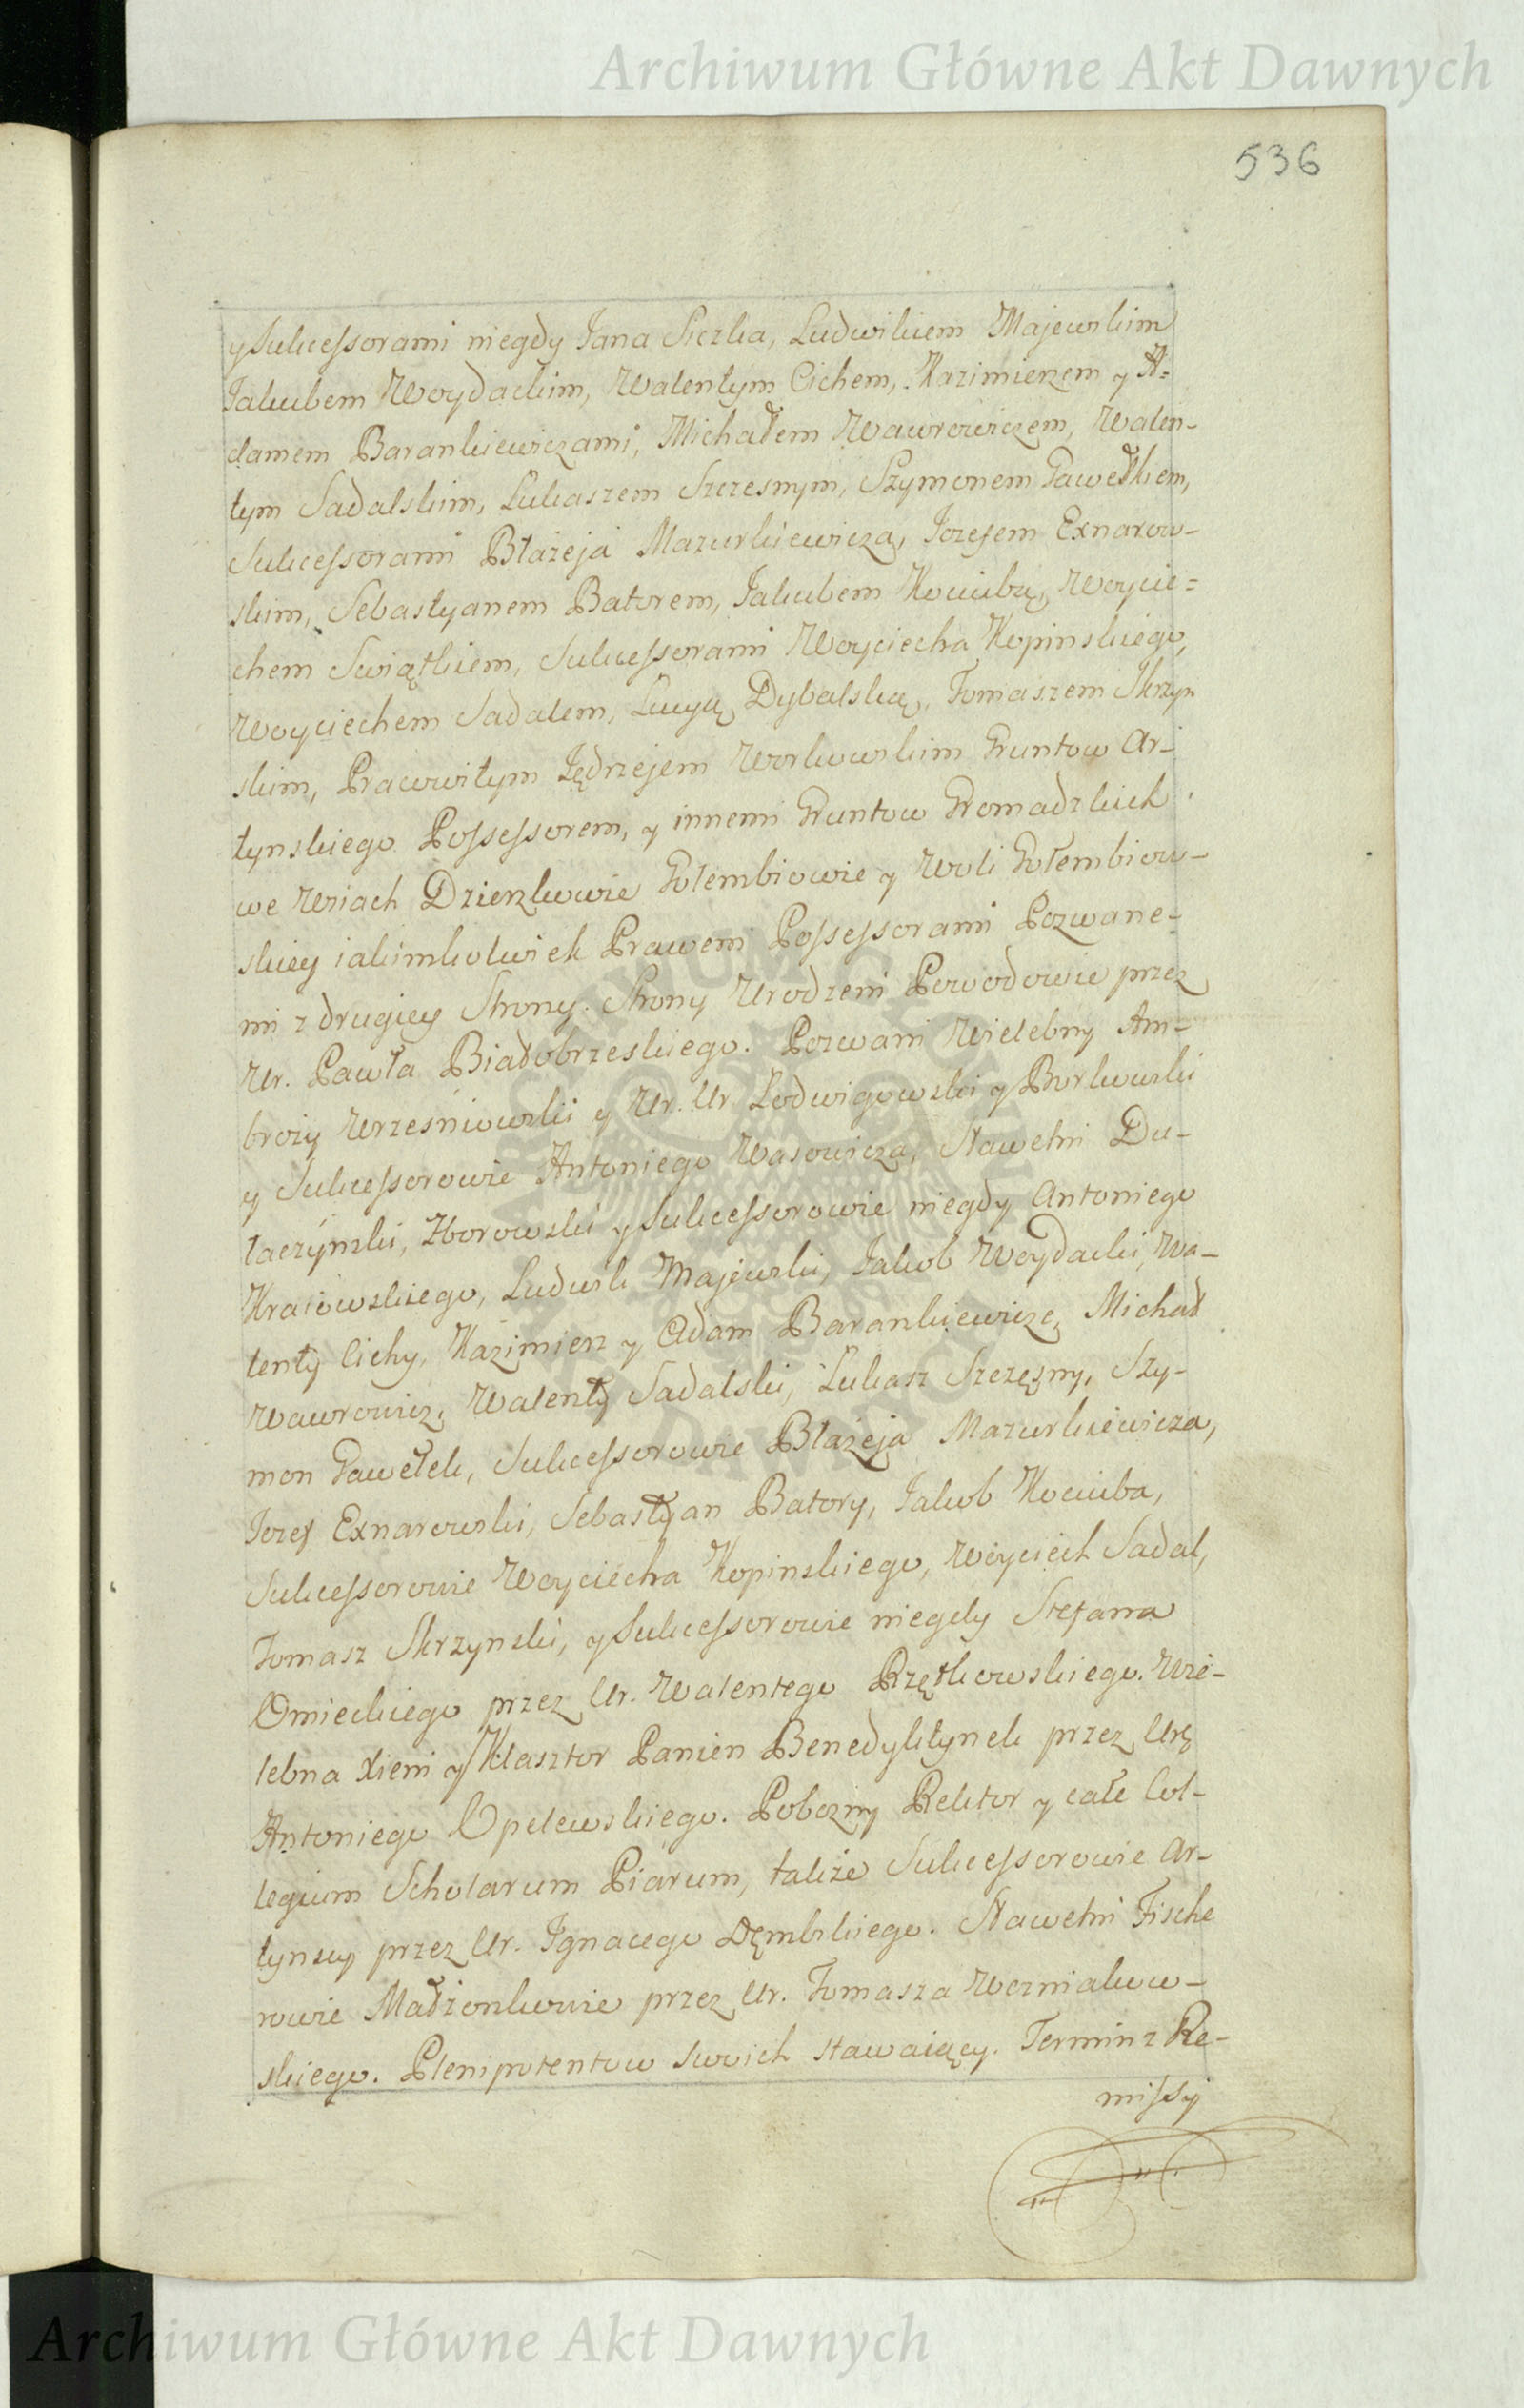 Archiwum Główne Akt Dawnych
536
y Sukcessorami niegdy Jana Siczka, Ludwikiem Majewskim
Jakubem Woydackim, Walentym Cichem, Kazimierzem y A=
damem Barankiewiczami, Michałem Wawrowiczem, Walen-
tym Sadalskim, Lukaszem Szczesnym, Szymonem Gawełkiem,
Sukcessorami Błażeja Mazurkiewicza, Jozefem Exnarow-
skim, Sebastyanem Batorem, Jakubem Kociubą, Woycie=
chem Swiątkiem, Sukcessorami Woyciecha Kopinskiego,
Woyciechem Sadalem, Lucyą Dybalską, Tomaszem Skrzyn
skim, Pracowitym Jędrzejem Workowskim Gruntow Ar-
tynskiego Possessorem, y innemi Gruntow Gromadzkich
we Wsiach Dzierzkowie Gołembiowie y Woli Gołembiow-
skiey iakimkolwiek Prawem Possessorami Pozwane-
mi z drugiey Strony. Strony Urodzeni Powodowie przez
Ur. Pawła Białobrzeskiego. Pozwani Wielebny Am-
broży Wrześniowski y Ur. Ur Lodwigowski y Borkowski
y Sukcessorowie Antoniego Wasowicza, Sławetni Du-
taczyński, Zborowski y Sukcessorowie niegdy Antoniego
Kraiowskiego, Ludwik Majewski, Jakob Woydacki, Wa-
lenty Cichy, Kazimierz y Adam Barankiewicze, Michał
Wawrowicz, Walenty Sadalski, Lukasz Szczęsny, Szy-
mon Gawełek, Sukcessorowie Błażeja Mazurkiewicza,
Jozef Exnarowski, Sebastyan Batory, Jakob Kociuba,
Sukcessorowie Woyciecha Kopinskiego, Woyciech Sadal,
Tomasz Skrzynski, y Sukcessorowie niegdy Stefana
Omieckiego przez Ur. Walentego Rzętkowskiego. Wie-
lebna Xieni y Klasztor Panien Benedyktynek przez Urę
Antoniego Opelewskiego. Pobozny Rektor y całe Col-
legium Scholarum Piarum, także Sukcessorowie Ar-
tynscy przez Ur. Ignacego Dęmbskiego. Sławetni Fische
rowie Małżonkowie przez Ur. Tomasza Woźniakow-
skiego. Plenipotentow swoich stawaiący. Termin z Re-
missyi
Archiwum Główne Akt Dawnych